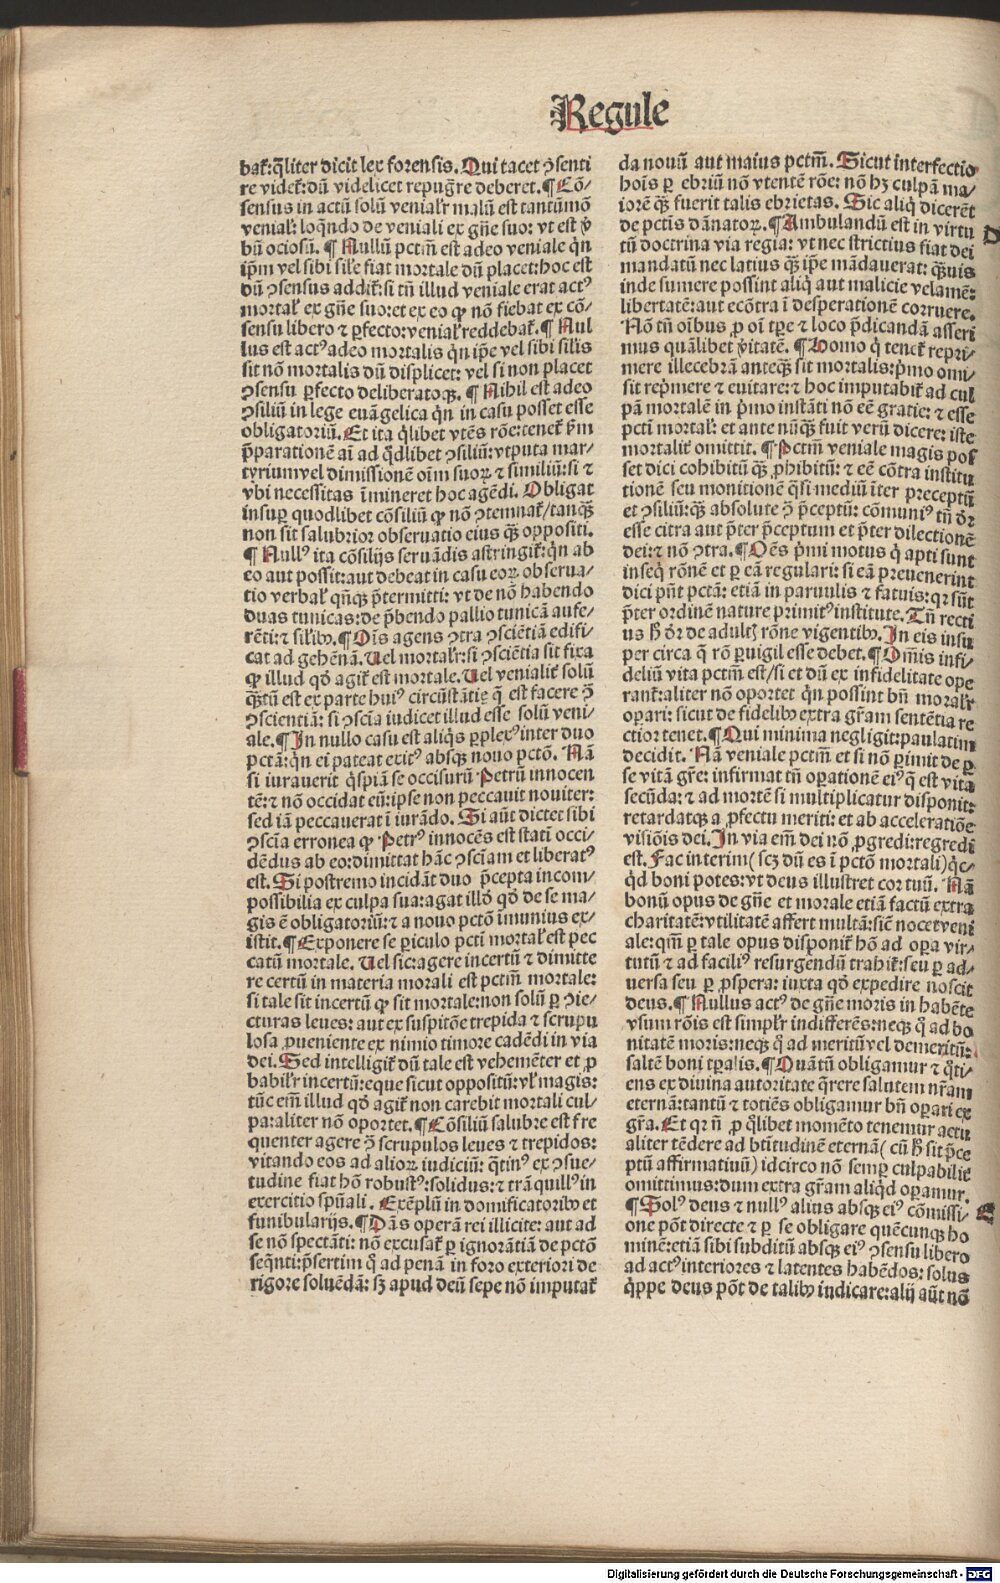 Regule
bat̄: q̄liter dicit lex forensis. Qui tacet ꝯsenti
re videt̄: dū videlicet repugn̄re deberet. ¶ Cō⸗
sensus in actū solū venial'r malū est tantūmō
venial': loq̄ndo de veniali ex gn̄e suo: vt est v̄
bū ociosū. ¶ Nullū pctm̄ est adeo veniale q̇n
ip̄m vel sibi sil'e fiat mortale dū placet: hoc est
dū ꝯsensus addit̄: si tn̄ illud veniale erat actꝰ
mortal' ex gn̄e suo: et ex eo ꝙ nō fiebat ex cō⸗
sensu libero ⁊ ꝑfecto: venial' reddebat̄. ¶ Nul
lus est actꝰ adeo mortalis q̇n ip̄e vel sibi sil'is
sit nō mortalis dū displicet: vel si non placet
ꝯsensu ꝑfecto deliberatoqꝫ. ¶ Nihil est adeo
ꝯsiliū in lege euāgelica q̇n in casu posset esse
obligatoriū. Et ita q̇libet vtēs rōe: tenet̄ ẜm
p̄parationē ai̅ ad q̇dlibet ꝯsiliū: vtputa mar⸗
tyrium vel dimissionē oim̄ suoꝝ ⁊ similiū: si ⁊
vbi necessitas īmineret hoc agēdi. Obligat
insuꝑ quodlibet cōsiliū ꝙ nō ꝯtemnat̄/ tanqꝫ
non sit salubrior obseruatio eius qꝫ oppositi.
¶ Nullꝰ ita cōsilijs seruādis astringit̄: q̇n ab
eo aut possit: aut debeat in casu eoꝝ obserua⸗
tio verbal' qn̄qꝫ p̄termitti: vt de nō habendo
duas tunicas: de p̄bendo pallio tunicā aufe⸗
rēti: ⁊ sil'ibꝫ. ¶ Oīs agens ꝯtra ꝯsciētiā edifi⸗
cat ad gehēnā. Uel mortal'r: si ꝯsciētia sit fixa
ꝙ illud qḋ agit̄ est mortale. Uel venialit̄ solū
qꝫtū est ex parte huiꝰ circūstātię q̄ est facere ꝯ̄
ꝯscientiā: si ꝯscia iudicet illud esse solū veni⸗
ale. ¶ In nullo casu est aliq̇s ꝑplexꝰ inter duo
pctā: q̇n ei pateat exitꝰ absqꝫ nouo pctō. Nā
si iurauerit q̇spiā se occisurū Petrū innocen
tē: ⁊ nō occidat eū: ipse non peccauit nouiter:
sed iā peccauerat ī iurādo. Si aūt dictet sibi
ꝯscia erronea ꝙ Petrꝰ innocēs est statī occi⸗
dēdus ab eo: dimittat hāc ꝯsciam et liberatꝰ
est. Si postremo incidāt duo p̄cepta incom⸗
possibilia ex culpa sua: agat illḋ qḋ de se ma⸗
gis ē obligatoriū: ⁊ a nouo pctō īmunius ex⸗
istit. ¶ Exponere se ꝑiculo pcti mortal' est pec
catū mortale. Uel sic: agere incertū ⁊ dimitte
re certū in materia morali est pctm̄ mortale:
si tale sit incertū ꝙ sit mortale: non solū ꝑ ꝯie⸗
cturas leues: aut ex suspitōe trepida ⁊ scrupu
losa ꝓueniente ex nimio timore cadēdi in via
dei. Sed intelligit̄ dū tale est vehemēter et ꝓ
babil'r incertū: eque sicut oppositū: vl' magis:
tūc em̄ illud qḋ agit̄ non carebit mortali cul⸗
pa: aliter nō oportet. ¶ Cōsiliū salubre est fre
quenter agere ꝯ̄ scrupulos leues ⁊ trepidos:
vitando eos ad alioꝝ iudiciū: q̄tinꝰ ex ꝯsue⸗
tudine fiat hō robustꝰ: solidus: ⁊ trāquillꝰ in
exercitio spūali. Exēplū in domificatoribꝫ et
funibularijs. ¶ Dās operā rei illicite: aut ad
se nō spectāti: nō excusat̄ ꝑ ignorātiā de pctō
seq̄nti: p̄sertim q̊ ad penā in foro exteriori de
rigore soluēdā: sꝫ apud deū sepe nō imputat̄
da nouū aut maius pctm̄. Sicut interfectio
hoīs ꝑ ebriū nō vtentē rōe: nō hꝫ culpā ma⸗
iorē qꝫ fuerit talis ebrietas. Sic aliq̇ dicerēt
de pctis dānatoꝝ. ¶ Ambulandū est in virtu
tū doctrina via regia: vt nec strictius fiat dei
mandatū nec latius qꝫ ip̄e mādauerat: qꝫuis
inde sumere possint aliq̇ aut malicie velamē:
libertatē: aut ecōtra ī desperationē corruere.
Nō tn̄ oībus ꝓ oī tp̄e ⁊ loco p̄dicandā asseri
mus quālibet v̄itatē. ¶ Homo q̇ tenet̄ repri⸗
mere illecebrā anteqꝫ sit mortalis: p̄mo omi⸗
sit rep̄mere ⁊ euitare: ⁊ hoc imputabit̄ ad cul
pā mortalē in p̄mo instāti nō eē gratie: ⁊ esse
pcti mortal': et ante nūqꝫ fuit verū dicere: iste
mortalit̄ omittit. ¶ Pctm̄ veniale magis pos
set dici cohibitū qꝫ ꝓhibitū: ⁊ eē cōtra institu
tionē seu monitionē q̄si mediū īter preceptū
et ꝯsiliū: qꝫ absolute ꝯ̄ p̄ceptū: cōmuniꝰ tn̄ dr̄
esse citra aut p̄ter p̄ceptum et p̄ter dilectionē
dei: ⁊ nō ꝯtra. ¶ Oēs p̄mi motus q̇ apti sunt
inseq̇ rōnē et ꝑ eā regulari: si eā preuenerint
dici pn̄t pctā: etiā in paruulis ⁊ fatuis: qꝛ sūt
p̄ter ordinē nature primitꝰ institute. Tn̄ recti
us h̄ dr̄ de adultꝭ rōne vigentibꝫ. In eis insu
per circa q̄ rō ꝑuigil esse debet. ¶ Om̄is infi⸗
deliū vita pctm̄ est/ si et dū ex infidelitate ope
rant̄: aliter nō oportet q̇n possint bn̄ moral'r
oꝑari: sicut de fidelibꝫ extra gr̄am sentētia re
ctior tenet. ¶ Qui minima negligit: paulatim
decidit. Nā veniale pctm̄ et si nō ꝑimit de ꝑ
se vitā gr̄e: infirmat tn̄ oꝑationē eiꝰ q̄ est vita
secūda: ⁊ ad mortē si multiplicatur disponit:
retardatqꝫ a ꝓfectu meriti: et ab acceleratiōe
visiōis dei. In via em̄ dei nō ꝓgredi: regredi
est. Fac interim (scꝫ dū es ī pctō mortali) q̇c⸗
q̇d boni potes: vt deus illustret cor tuū. Nā
bonū opus de gn̄e et morale etiā factū extra
charitatē: vtilitatē affert multā: sic̄ nocet veni
ale: qm̄ ꝑ tale opus disponit̄ hō ad oꝑa vir⸗
tutū ⁊ ad faciliꝰ resurgendū trahit̄: seu ꝑ ad⸗
uersa seu ꝑ ꝓspera: iuxta qḋ expedire noscit
deus. ¶ Nullus actꝰ de gn̄e moris in habēte
vsum rōis est simpl'r indifferēs: neqꝫ q̊ ad bo
nitatē moris: neqꝫ q̊ ad meritū vel demeritū:
saltē boni tꝑalis. ¶ Quātū obligamur ⁊ q̊ti⸗
ens ex diuina autoritate q̄rere salutem nr̄am
eternā: tantū ⁊ totiēs obligamur bn̄ oꝑari ex
gr̄a. Et qꝛ n̄ ꝓ q̇libet momēto tenemur actu
aliter tēdere ad bt̄itudinē eternā (cū h̄ sit p̄ce
ptū affirmatiuū) idcirco nō semꝑ culpabilit̄
omittimus: dum extra gr̄am aliq̇d oꝑamur.
¶ Solꝰ deus ⁊ nullꝰ alius absqꝫ eiꝰ cōmissi⸗
one pōt directe ⁊ ꝑ se obligare quēcunqꝫ ho
minē: etiā sibi subditū absqꝫ eiꝰ ꝯsensu libero
ad actꝰ interiores ⁊ latentes habēdos: solus
q̇ppe deus pōt de talibꝫ iudicare: alij aūt nō
D
E
Digitalisierung gefördert durch die Deutsche Forschungsgemeinschaft - DFG